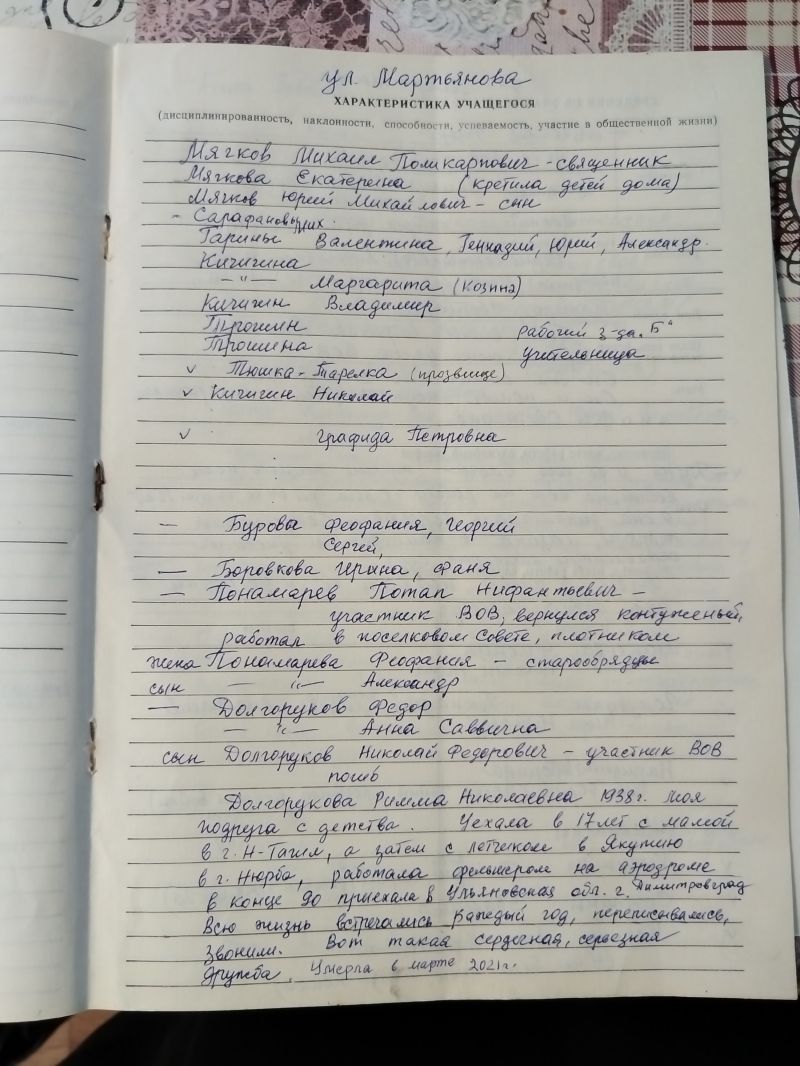 ул. Мартьянова
ХАРАКТЕРИСТИКА УЧАЩЕГОСЯ
(дисциплинированность, наклонности, способности, успеваемость, участие в общественной жизни)
Мягков Михаил Поликарпович - священник
Мягкова Екатерина (крестила детей дома)
Мягков Юрий Михайлович - сын
- Сарафановых
Гарины Валентина, Геннадий, Юрий, Александр.
Кичигина
— " — Маргарита (Козина)
Кичигин Владимир
Трошин рабочий з-да „Б"
Трошина учительница
✓ Тюшка-Тарелка (прозвище)
✓ Кичигин Николай
✓ Графида Петровна
— Буровы Феофания, Георгий
Сергей,
— Боровкова Ирина, Фаня
— Понамарев Потап Нифантьевич -
участник ВОВ, вернулся контуженый,
работал в поселковом Совете, плотником
жена Понамарева Феофания - старообрядцы
сын — " — Александр
— Долгоруков Федор
— " — Анна Саввична
сын Долгоруков Николай Федорович - участник ВОВ
погиб
Долгорукова Римма Николаевна 1938г. моя
подруга с детства. Уехала в 17 лет с мамой
в г. Н-Тагил, а затем с летчиком в Якутию
в г. Нюрба, работала фельшером на аэродроме
в конце 90 приехала в Ульяновская обл. г. Димитровград
Всю жизнь встречались каждый год, переписывались,
звонили. Вот такая сердечная, серьезная
дружба. Умерла в марте 2021г.